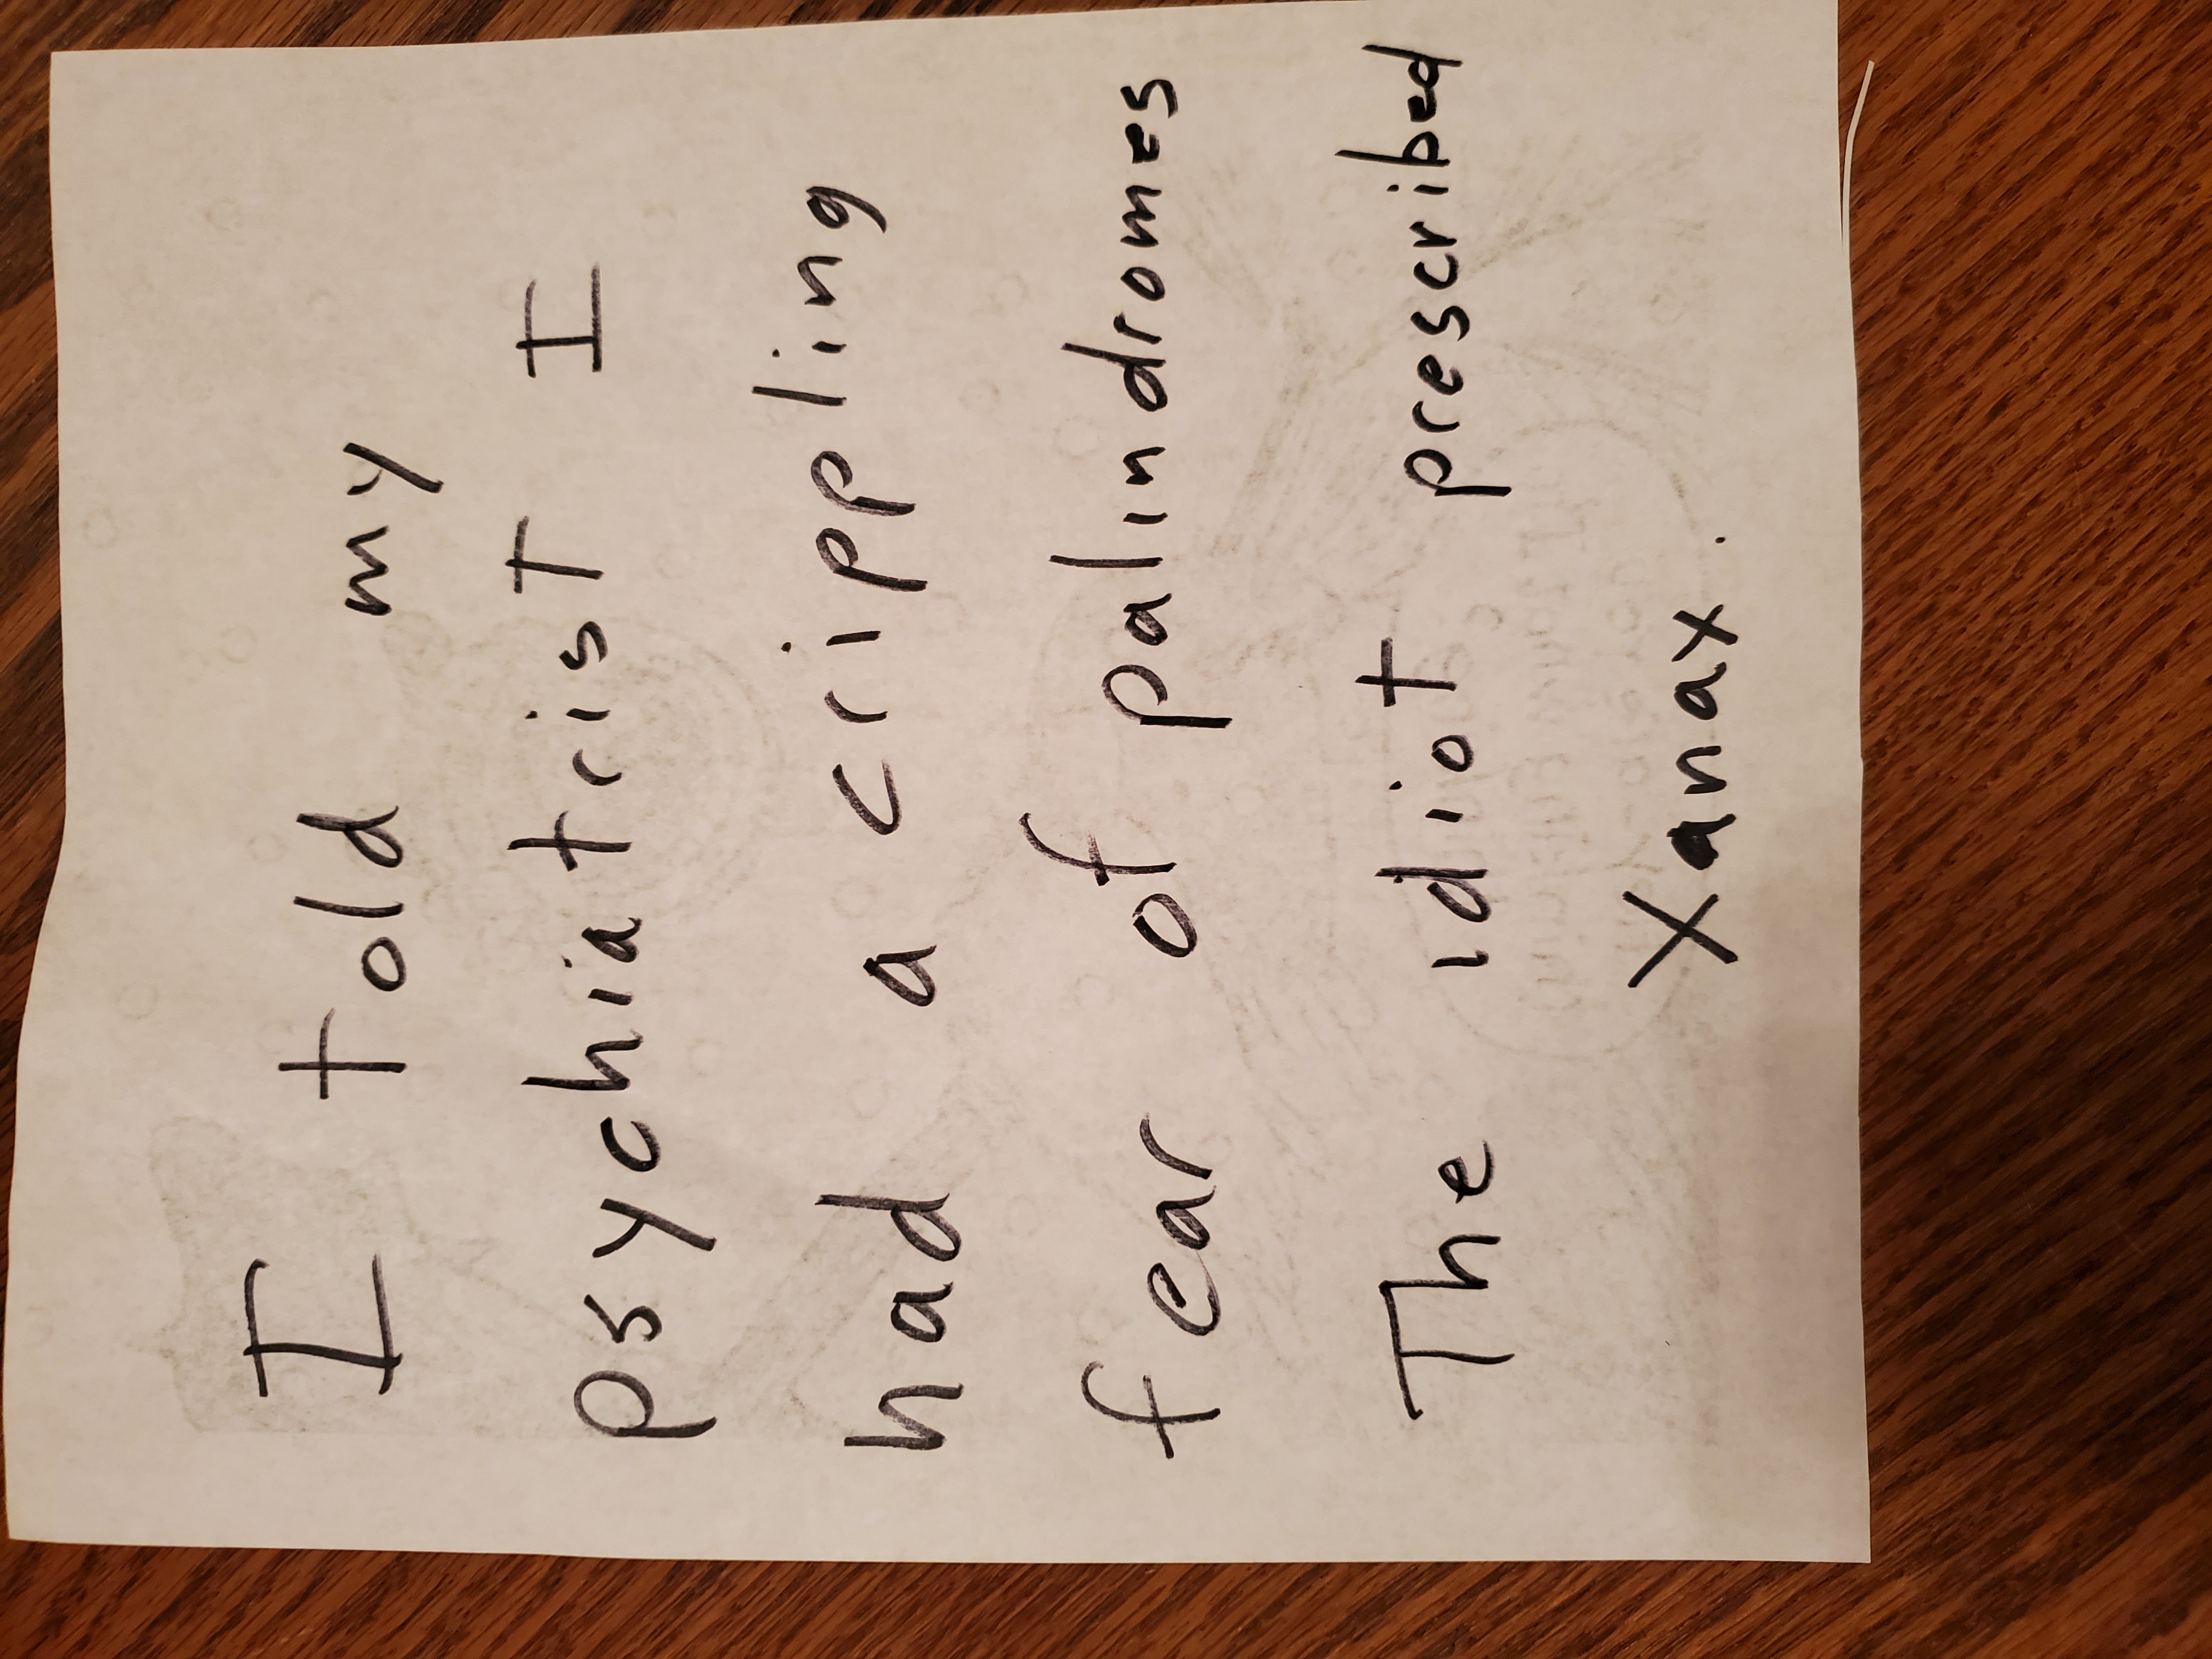 I told my
psychiatrist I
had a crippling
fear of palindromes
The idiot prescribed
Xanax.